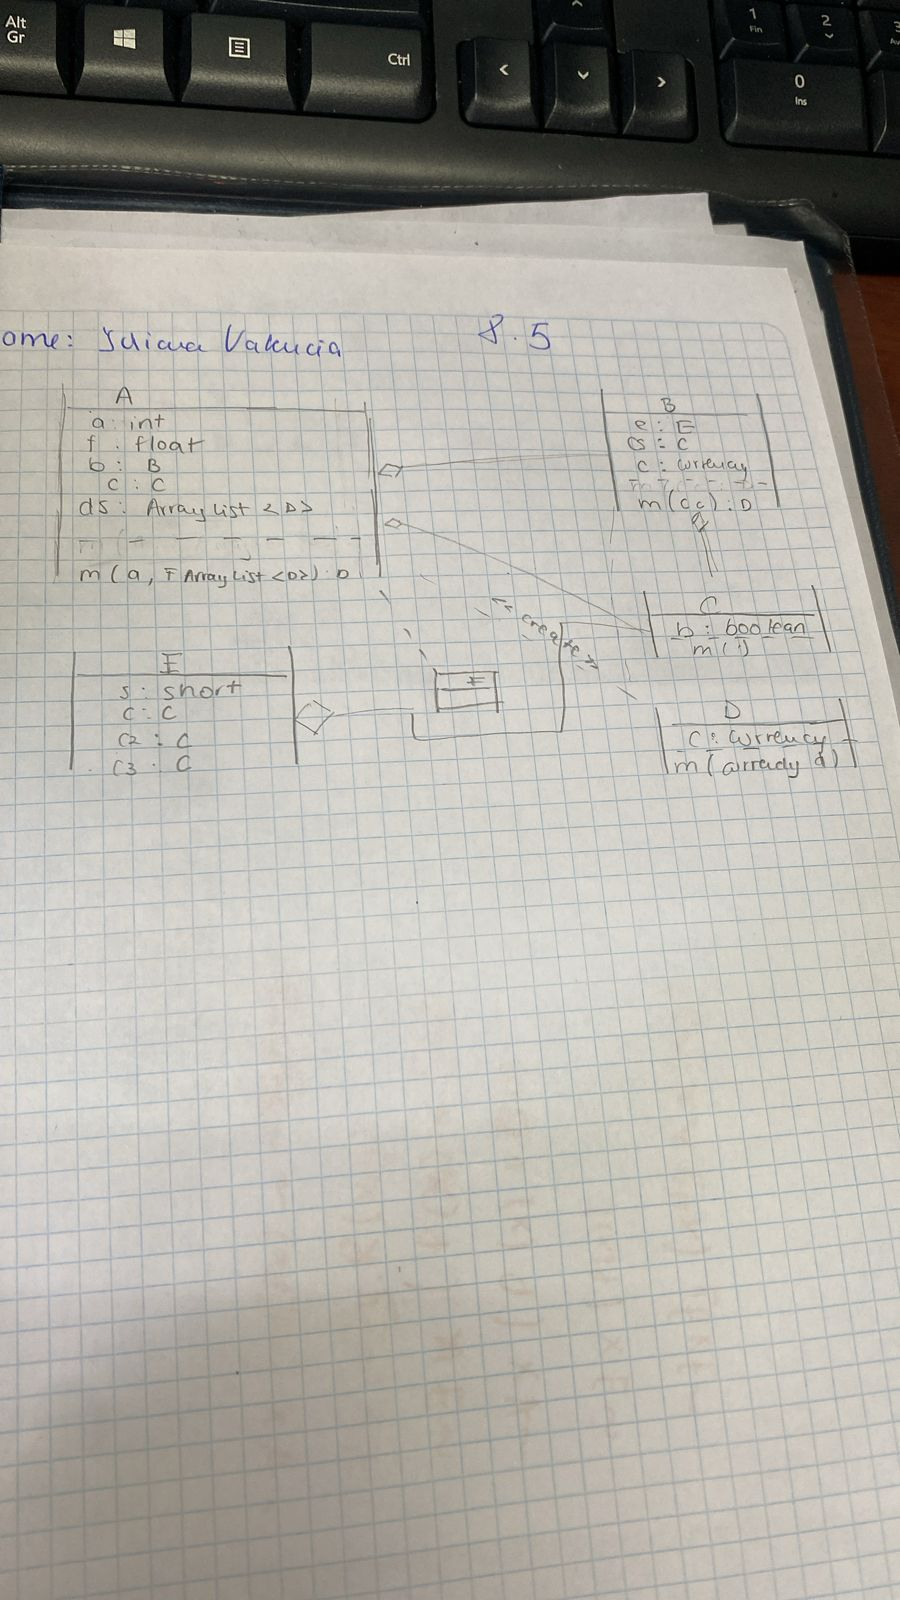 Alt
Gr
Ctrl
1
Fin
2
3
0
Ins
ome: Juliana Valencia 8.5
A
a: int
f: float
b: B
c: C
ds: ArrayList <D>
m(a, F ArrayList <D>): D
B
e: E
cs: C
c: currency
m(C c): D
<<create>>
C
b: boolean
m()
E
s: short
c: C
c2: C
c3: C
E
D
c: currency
m(array d)